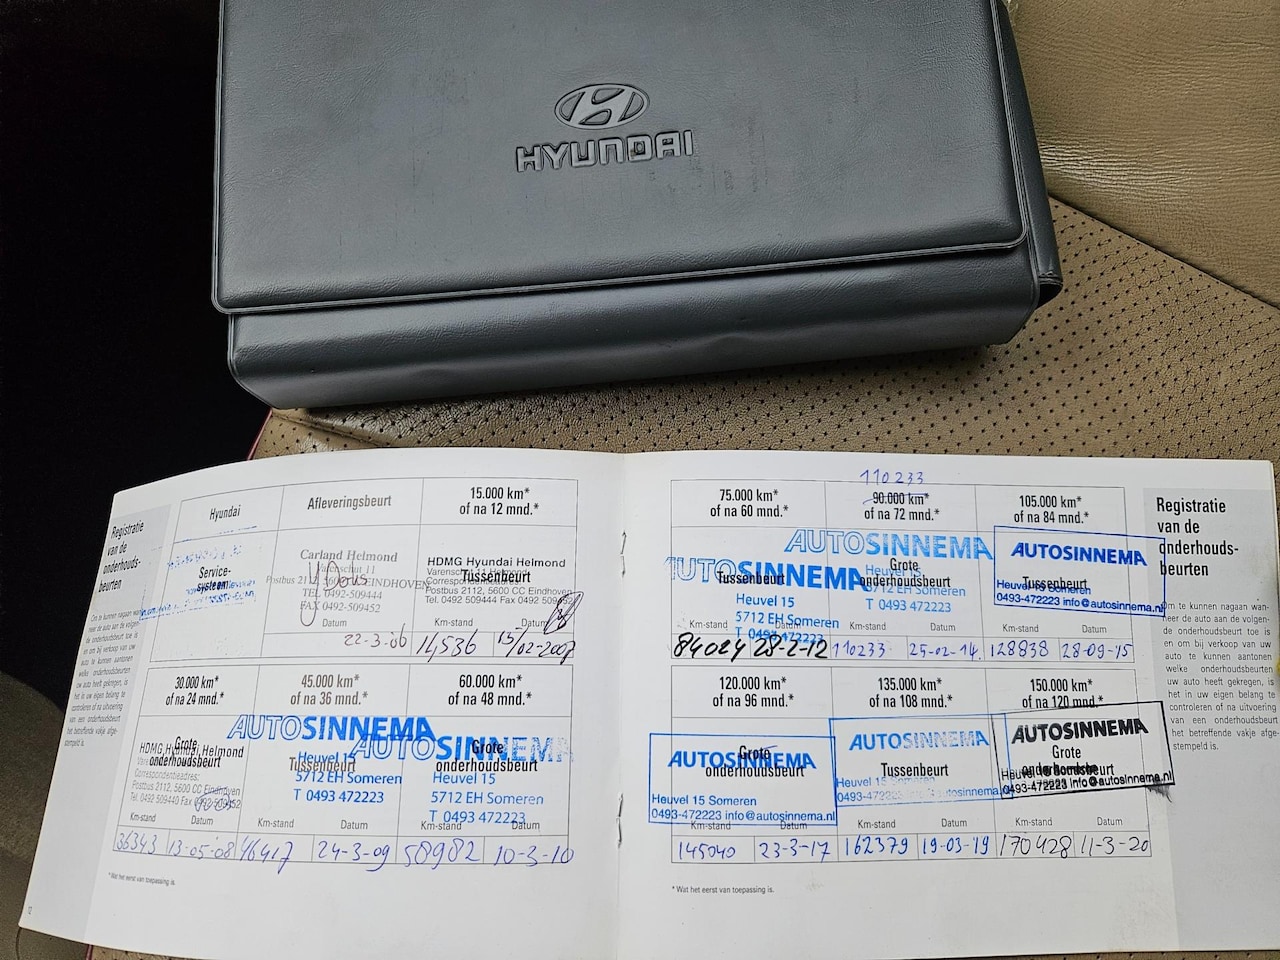 HYUNDAI
Registratie
van de
onderhouds-
beurten
Om te kunnen nagaan wan-
neer de auto aan de volgen-
de onderhoudsbeurt toe is
en om bij verkoop van uw
auto te kunnen aantonen
welke onderhoudsbeurten
uw auto heeft gekregen, is
het in uw eigen belang te
controleren of na uitvoering
van een onderhoudsbeurt
het betreffende vakje afge-
stempeld is.
Hyundai
Service-
systeem
Afleveringsbeurt
Carland Helmond
Varenschut 11
Postbus 2112, 5600 CC EINDHOVEN
TEL 0492-509444
FAX 0492-509452
Datum
22-3-06
15.000 km*
of na 12 mnd.*
HDMG Hyundai Helmond
Tussenbeurt
Postbus 2112, 5600 CC Eindhoven
Tel. 0492 509444 Fax 0492 509452
Km-stand Datum
14536 15/02-2007
30.000 km*
of na 24 mnd.*
HDMG Hyundai Helmond
Grote
onderhoudsbeurt
Correspondentieadres:
Postbus 2112, 5600 CC Eindhoven
Km-stand Datum
36343 13-05-08
45.000 km*
of na 36 mnd.*
AUTOSINNEMA
Tussenbeurt
Heuvel 15
5712 EH Someren
T 0493 472223
Km-stand Datum
46417 24-3-09
60.000 km*
of na 48 mnd.*
AUTOSINNEMA
Grote
onderhoudsbeurt
Heuvel 15
5712 EH Someren
T 0493 472223
Km-stand Datum
58982 10-3-10
* Wat het eerst van toepassing is.
12
75.000 km*
of na 60 mnd.*
AUTOSINNEMA
Tussenbeurt
Heuvel 15
5712 EH Someren
T 0493 472223
Km-stand Datum
84024 28-2-12
110233
90.000 km*
of na 72 mnd.*
AUTOSINNEMA
Grote
onderhoudsbeurt
Heuvel 15
5712 EH Someren
T 0493 472223
Km-stand Datum
110233 25-02-14
105.000 km*
of na 84 mnd.*
AUTOSINNEMA
Tussenbeurt
Heuvel 15 Someren
0493-472223 info@autosinnema.nl
Km-stand Datum
128838 28-09-15
120.000 km*
of na 96 mnd.*
AUTOSINNEMA
Grote
onderhoudsbeurt
Heuvel 15 Someren
0493-472223 info@autosinnema.nl
Km-stand Datum
145040 23-3-17
135.000 km*
of na 108 mnd.*
AUTOSINNEMA
Tussenbeurt
Heuvel 15 Someren
0493-472223 info@autosinnema.nl
Km-stand Datum
162379 19-03-19
150.000 km*
of na 120 mnd.*
AUTOSINNEMA
Grote
onderhoudsbeurt
Heuvel 15 Someren
0493-472223 info@autosinnema.nl
Km-stand Datum
170428 11-3-20
* Wat het eerst van toepassing is.
Registratie
van de
onderhouds-
beurten
Om te kunnen nagaan wan-
neer de auto aan de volgen-
de onderhoudsbeurt toe is
en om bij verkoop van uw
auto te kunnen aantonen
welke onderhoudsbeurten
uw auto heeft gekregen, is
het in uw eigen belang te
controleren of na uitvoering
van een onderhoudsbeurt
het betreffende vakje afge-
stempeld is.